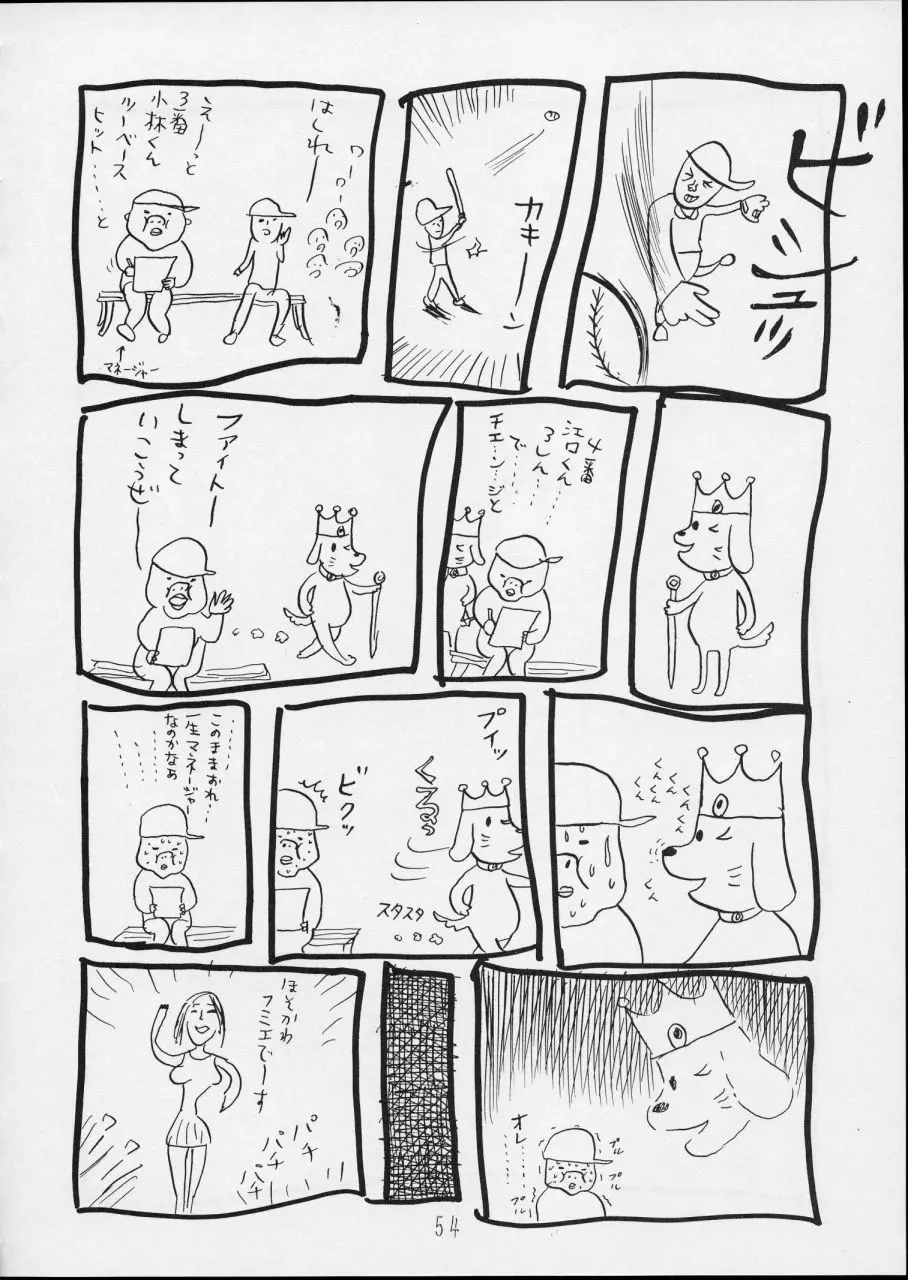 ビシュッ
カキーン
ワーワー
はしれー
えーっと
3番
小林くん
ツーベース
ヒット……と
マネージャー
4番
江口くん
3しん…
で……
チェ…ン…ジと
ファイトー
しまって
いこうぜー
くんくん
くんくん
くんくん
くん
プイッ
くるうっ
ビクッ
スタスタ
このままおれ…
一生マネージャー
なのかなぁ
オレ……
プル
プル
プル
ほそかわ
フミエでーす
パチ
パチ
パチ
54